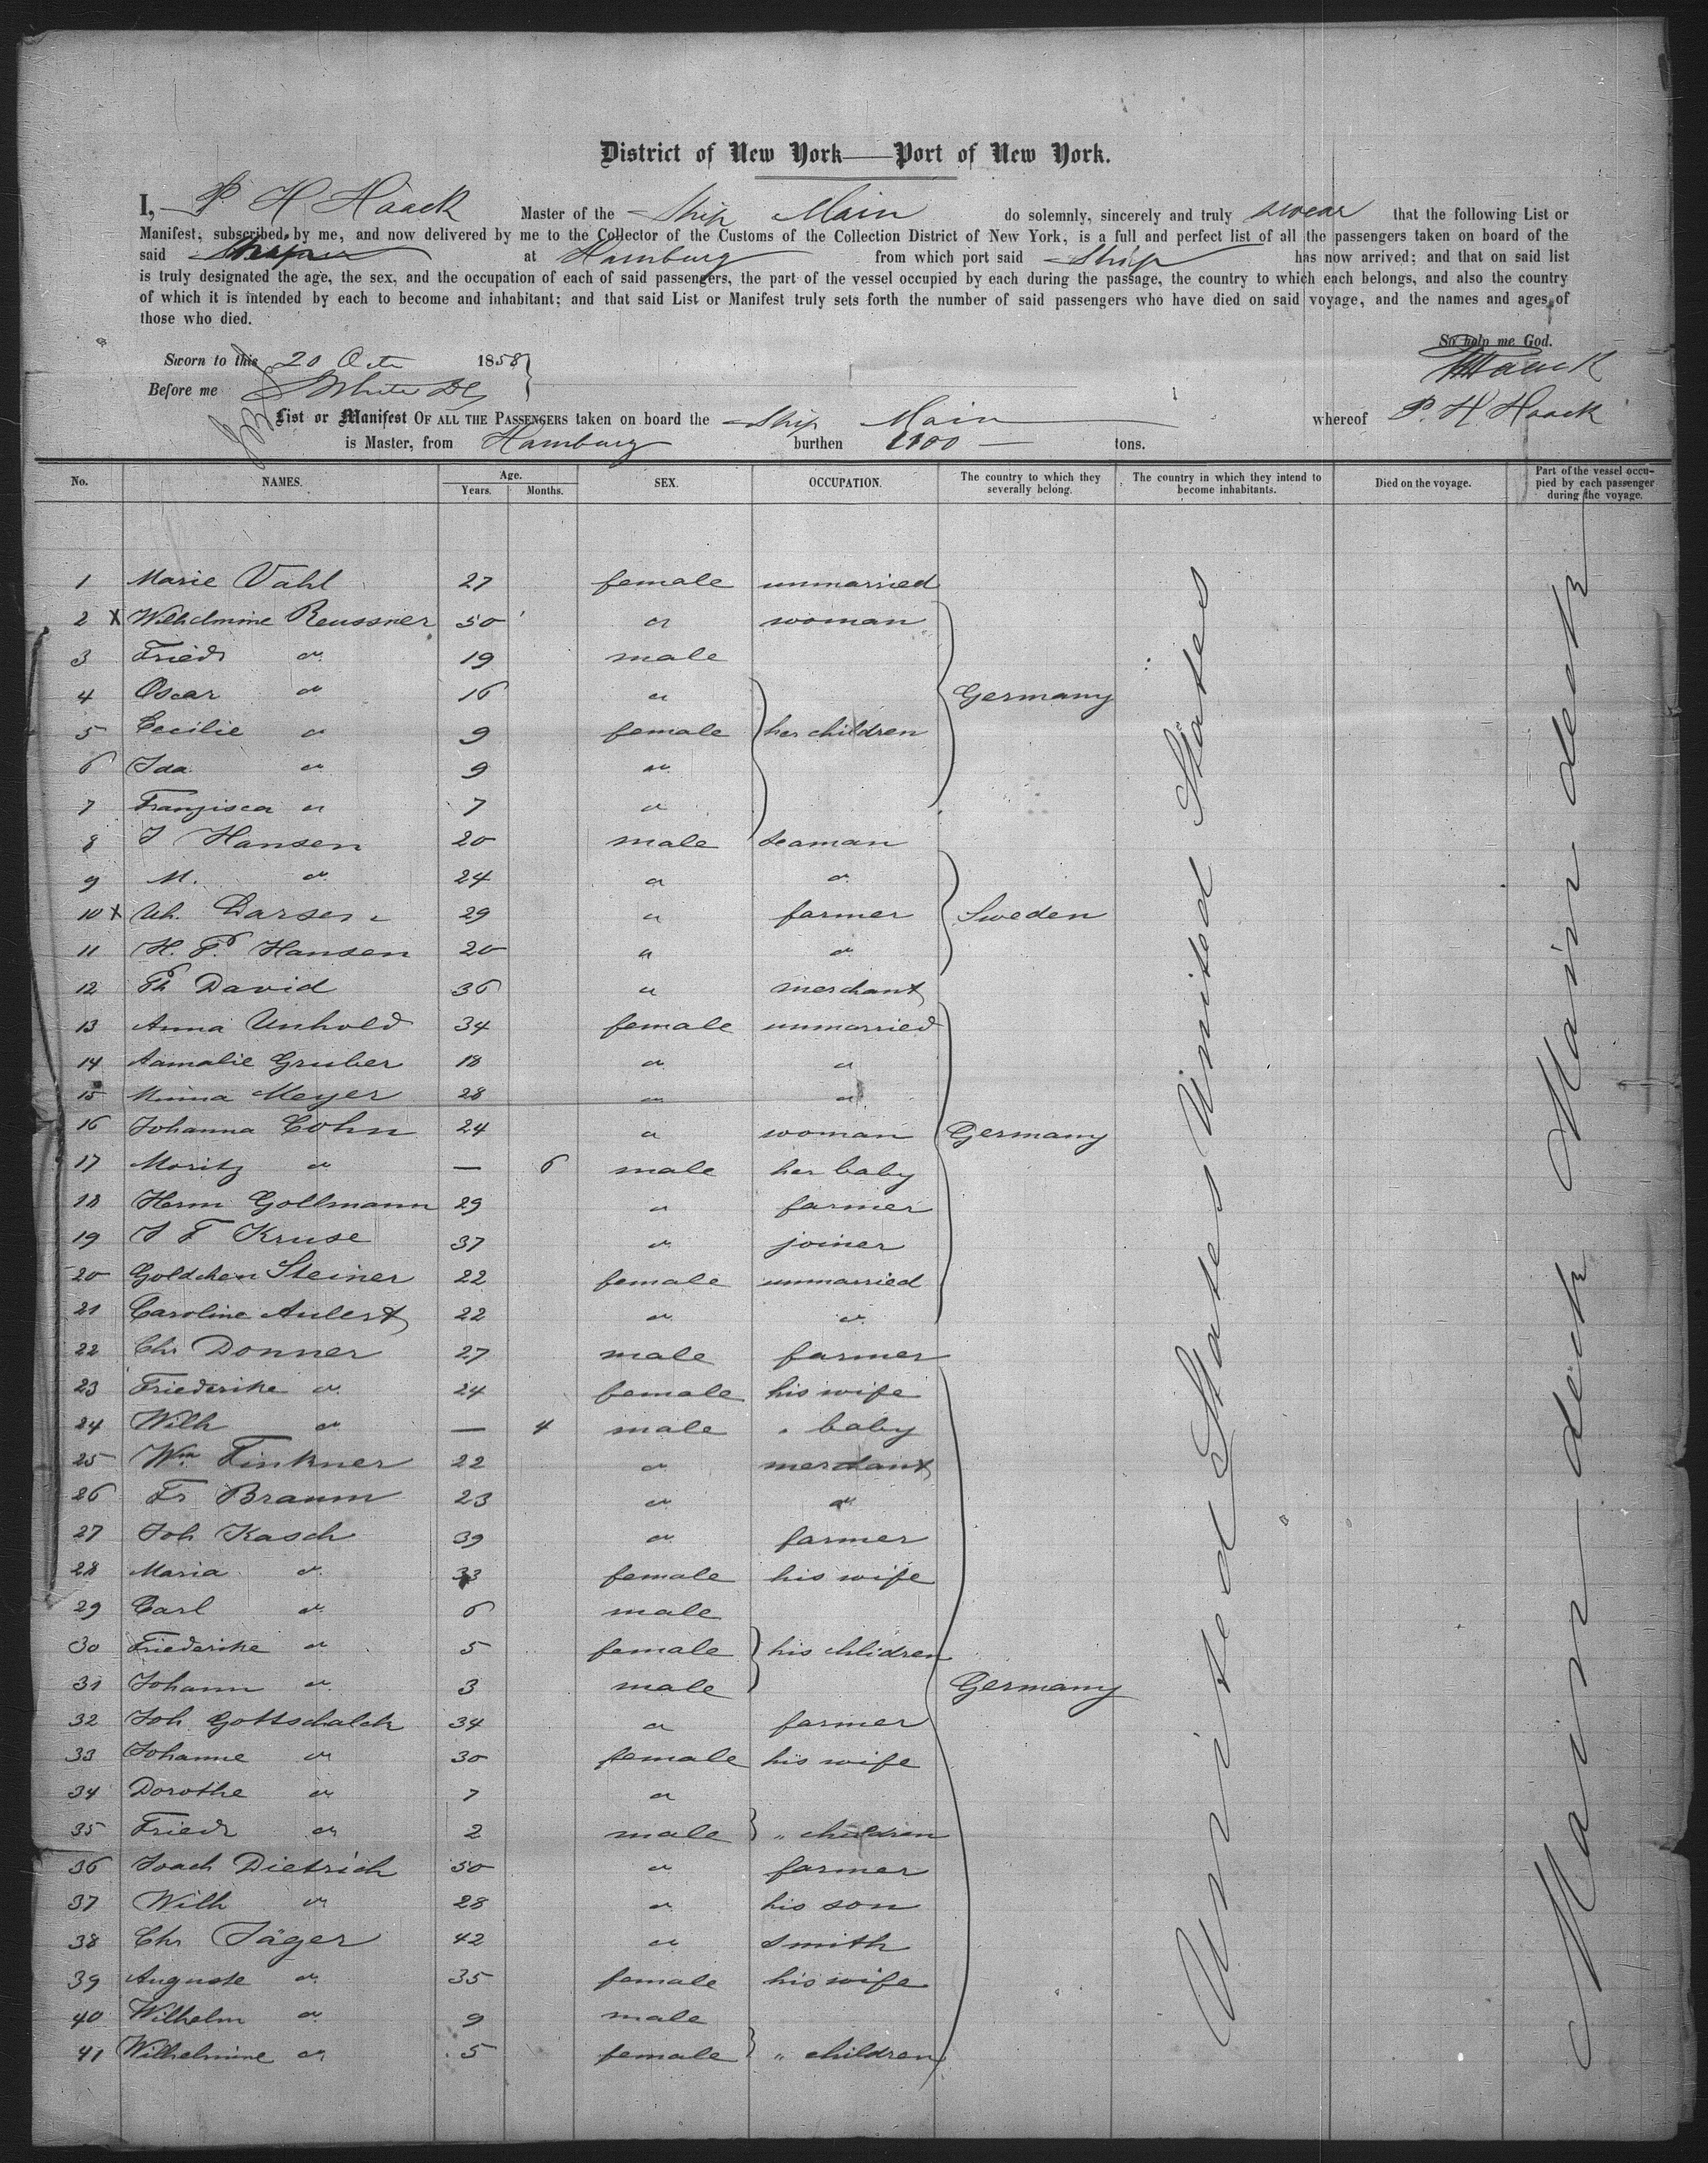 District of New York—Port of New York.
I, P H Haack Master of the Ship Main do solemnly, sincerely and truly swear that the following List or
Manifest, subscribed by me, and now delivered by me to the Collector of the Customs of the Collection District of New York, is a full and perfect list of all the passengers taken on board of the
said at Hamburg from which port said Ship has now arrived; and that on said list
is truly designated the age, the sex, and the occupation of each of said passengers, the part of the vessel occupied by each during the passage, the country to which each belongs, and also the country
of which it is intended by each to become and inhabitant; and that said List or Manifest truly sets forth the number of said passengers who have died on said voyage, and the names and ages of
those who died.
So help me God.
Sworn to this 20 Oct 1858
PHHaack
Before me White
List or Manifest OF ALL THE PASSENGERS taken on board the Ship Main whereof P. H. Haack
is Master, from Hamburg burthen 1100 tons.
No. NAMES. Age. Years. Months. SEX. OCCUPATION. The country to which they severally belong. The country in which they intend to become inhabitants. Died on the voyage. Part of the vessel occupied by each passenger during the voyage.
1 Marie Vahl 27 female unmarried
2 X Wilhelmine Reussner 50 " woman
3 Friedr " 19 male
4 Oscar " 16 " Germany
5 Cecilie " 9 female her children
6 Ida " 9 "
7 Franzisca " 7 "
8 J Hansen 20 male seaman
9 M. " 24 " "
10 X Uh. Larsen 29 " farmer Sweden
11 H. P. Hansen 20 " "
12 Ph David 36 " merchant
13 Anna Unhold 34 female unmarried
14 Aamalie Gruber 18 " "
15 Minna Meyer 28 " "
16 Johanna Cohn 24 " woman Germany
17 Moritz " — 6 male her baby
18 Herm Gollmann 29 " farmer
19 J F Kruse 37 " joiner
20 Goldchen Steiner 22 female unmarried
21 Caroline Aulert 22 " "
22 Chr Donner 27 male farmer
23 Friederike " 24 female his wife
24 Wilh " — 4 male " baby
25 Wm Finkner 22 " merchant
26 Fr Braum 23 " "
27 Joh Kasch 39 " farmer
28 Maria " 33 female his wife
29 Carl " 6 male
30 Friederike " 5 female his chlidren
31 Johann " 3 male Germany
32 Joh Gottschalck 34 " farmer
33 Johanne " 30 female his wife
34 Dorothe " 7 "
35 Friedr " 2 male " children
36 Joach Dietrich 50 " farmer
37 Wilh " 28 " his son
38 Chr Jäger 42 " smith
39 Auguste " 35 female his wife
40 Wilhelm " 9 male
41 Wilhelmine " 5 female " children
United States United States
Main deck Main deck